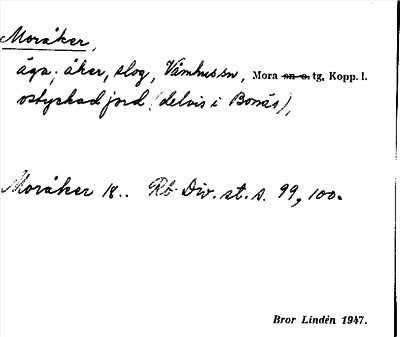 Moråker,
äga; åker, slog, Våmhus sn, Mora sn o. tg, Kopp. l.
ostyckad jord (delvis i Bonäs),
Moråker 18.. Rb Div. st. s. 99, 100.
Bror Lindén 1947.